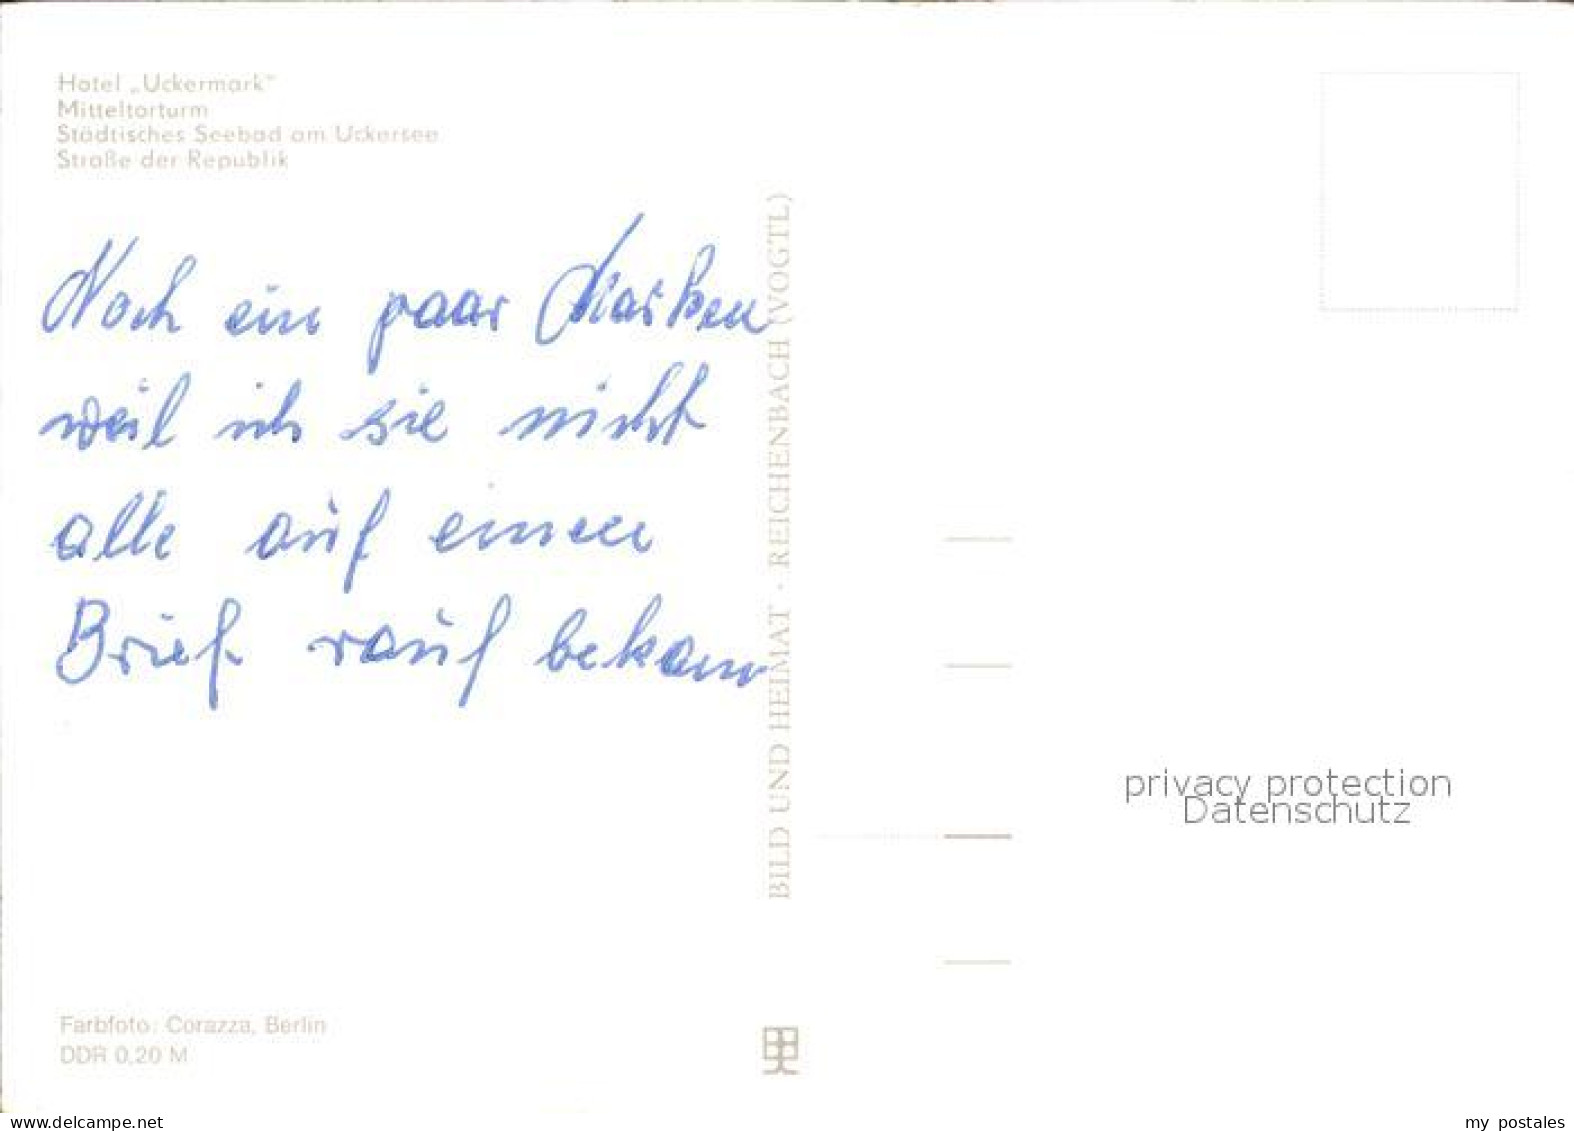 Hotel „Uckermark"
Mitteltorturm
Städtisches Seebad am Uckersee
Straße der Republik
Noch ein paar Marken
weil ich sie nicht
alle auf einen
Brief rauf bekam
BILD UND HEIMAT · REICHENBACH (VOGTL)
privacy protection
Datenschutz
Farbfoto: Corazza, Berlin
DDR 0,20 M
www.delcampe.net
my postales